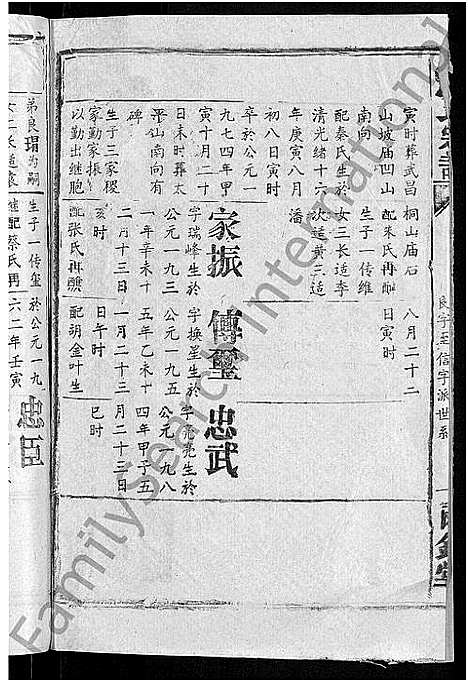 良字至信字派世系
寅时葬武昌
山坡庙凹山
南向
配秦氏生於
清光绪十六
年庚寅八月
初八日寅时
卒於公元一
九七四年甲
寅十月二十
日未时葬太
平山南向有
碑
生子三家稷
家勤家振
以勤出继胞
弟良瑁为嗣
桐山庙石
配朱氏再酗
生子一传维
女三长适李
次适黄三适
潘
家振
字瑞峰生於
公元一九三
一年辛未十
二月十三日
亥时
配张氏再醮
继配蔡氏再
生子一传玺
八月二十二
日寅时
傅玺
字换星生於
公元一九五
五年乙未十
一月二十三
日午时
配胡金叶生
於公元一九
六二年壬寅
忠武
字亮亮生於
公元一九八
四年甲子五
月二十三日
巳时
忠臣
FamilySearch International